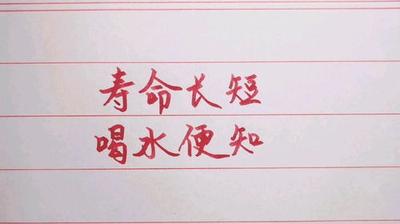 寿命长短
喝水便知